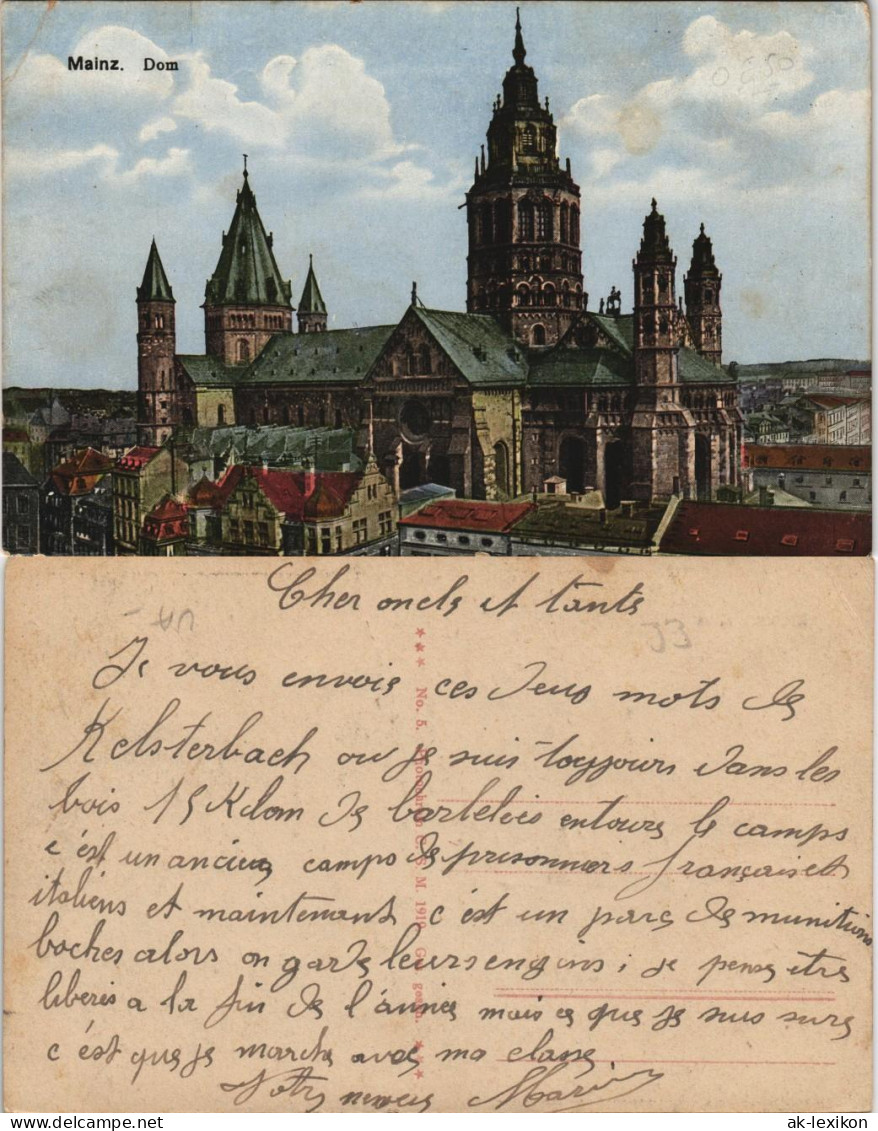 Mainz. Dom
0 € 50
Cher oncle et tante
Je vous envoie ces deux mots de
Kelsterbach ou je suis toujours dans les
bois 15 Kilom de barbelées entoure le camps
c'est un ancien camps de prisonniers français et
italiens et maintenant c'est un parc de munitions
boches alors on garde leurs engins ; je pense etre
liberé a la fin de l'année mais ce que je suis sure
c'est que je marche avec ma classe
Votre neveu
No. 5.
M. 191
ak-lexikon.com